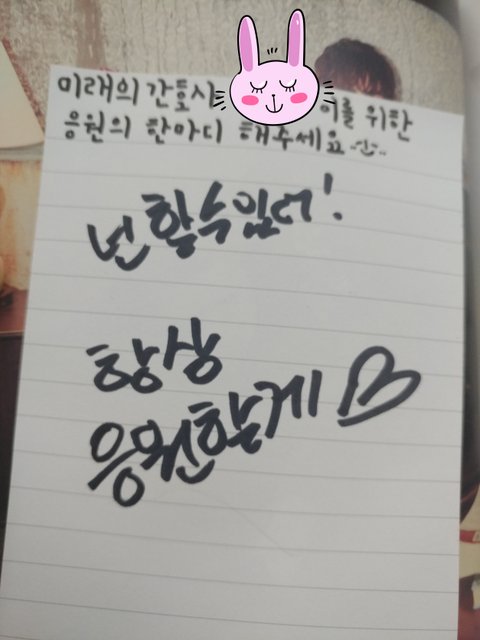 미래의 간호사 이를 위한
응원의 한마디 해주세요
넌 할 수 있어!
항상
응원할게